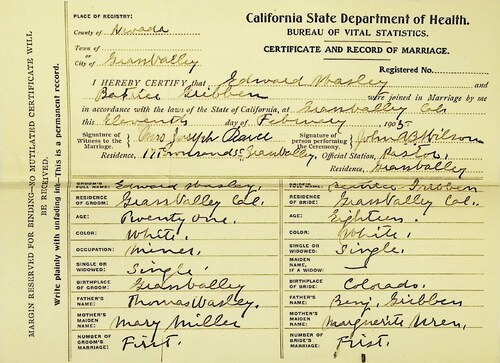 California State Department of Health.
BUREAU OF VITAL STATISTICS.
CERTIFICATE AND RECORD OF MARRIAGE.
PLACE OF REGISTRY:
County of Nevada
Town of
or
City of Grass Valley
Registered No.
I HEREBY CERTIFY that Edward Wasley and
Gribben were joined in Marriage by me
in accordance with the laws of the State of California, at Grass Valley Cal.
this Eleventh day of February 1905
Signature of Witness to the Marriage. Mrs Joseph Pearce
Signature of person performing the Ceremony. John Wilson
Residence, Grass Valley, Official Station, Pastor
Residence, Grass Valley
MARGIN RESERVED FOR BINDING—NO MUTILATED CERTIFICATE WILL BE RECEIVED.
Write plainly with unfading ink—This is a permanent record.
GROOM'S FULL NAME: Edward Wasley.
Gribben
RESIDENCE OF GROOM: Grass Valley Cal.
RESIDENCE OF BRIDE: Grass Valley Cal.
AGE: Twenty One.
AGE: Eighteen.
COLOR: White.
COLOR: White.
OCCUPATION: Miner.
SINGLE OR WIDOWED: Single.
SINGLE OR WIDOWED: Single
MAIDEN NAME, IF A WIDOW: —
BIRTHPLACE OF GROOM: Grass Valley
BIRTHPLACE OF BRIDE: Colorado.
FATHER'S NAME: Thomas Wasley.
FATHER'S NAME: Benj. Gribben
MOTHER'S MAIDEN NAME: Mary Miller
MOTHER'S MAIDEN NAME: Marguerite Wren.
NUMBER OF GROOM'S MARRIAGE: First.
NUMBER OF BRIDE'S MARRIAGE: First.